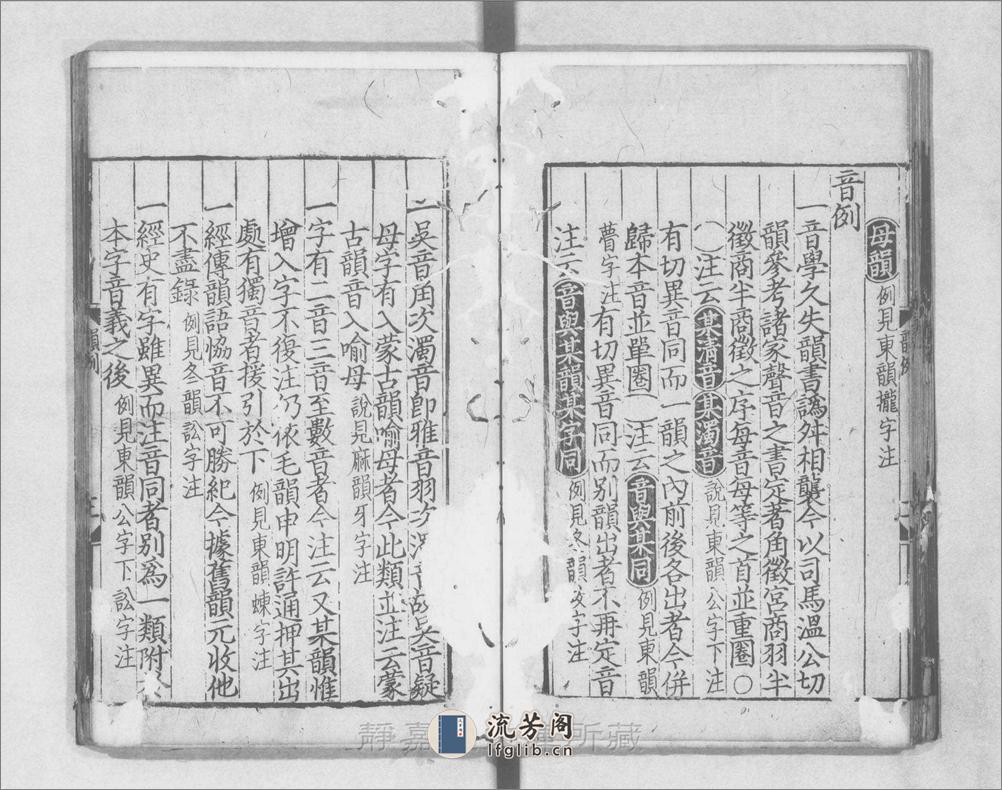 母韻 例見東韻攏字注
音例
一音學久失韻書譌舛相襲今以司馬溫公切
韻參考諸家聲音之書定著角徵宮商羽半
徵商半商徵之序每音每等之首並重圈〇
〇注云某清音某濁音 說見東韻公字下注
有切異音同而一韻之內前後各出者今併
歸本音並單圈〇注云音與某同 例見東韻
瞢字注 有切異音同而別韻出者不再定音
注云音與某韻某字同 例見冬韻 字注
一吳音角次濁音卽雅音羽次 音故吳音疑
母字有入蒙古韻喻母者今此類並注云蒙
古韻音入喻母 說見麻韻牙字注
一字有二音三音至數音者今注云又某韻惟
增入字不復注仍依毛韻申明許通押其出
處有獨音者援引於下 例見東韻蝀字注
一經傳韻語協音不可勝紀今據舊韻元收他
不盡錄 例見冬韻訟字注
一經史有字雖異而注音同者別爲一類附於
本字音義之後 例見東韻公字下訟字注
韻例
韻例
靜嘉 所藏
流芳阁
lfglib.cn